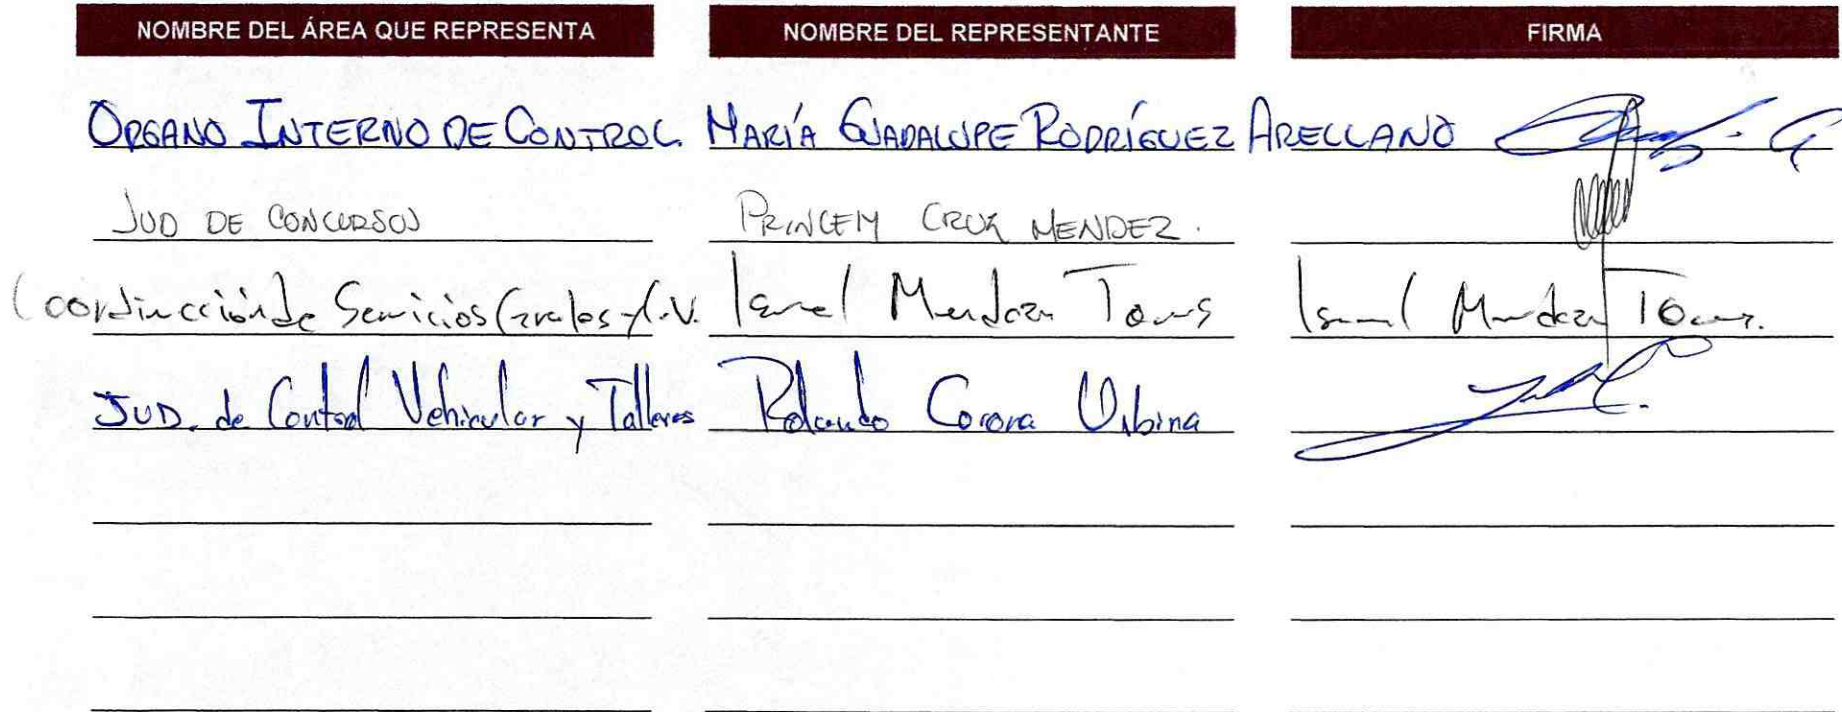 NOMBRE DEL ÁREA QUE REPRESENTA NOMBRE DEL REPRESENTANTE FIRMA
ORGANO INTERNO DE CONTROL MARÍA GUADALUPE RODRÍGUEZ ARELLANO
JUD DE CONCURSOS PRINCEM CRUZ MENDEZ.
Coordinación de Servicios Grales y C.V. Ismael Mendoza Torres Ismael Mendoza Torres.
JUD. de Control Vehicular y Talleres Rolando Corona Urbina